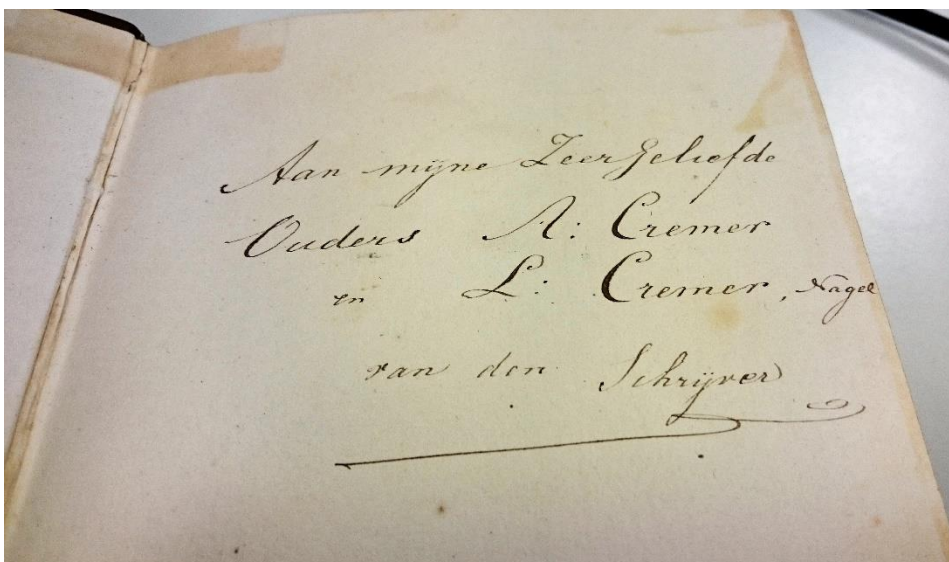 Aan mijne Zeer Geliefde
Ouders A: Cremer
en L: Cremer, Nagel
van den Schrijver